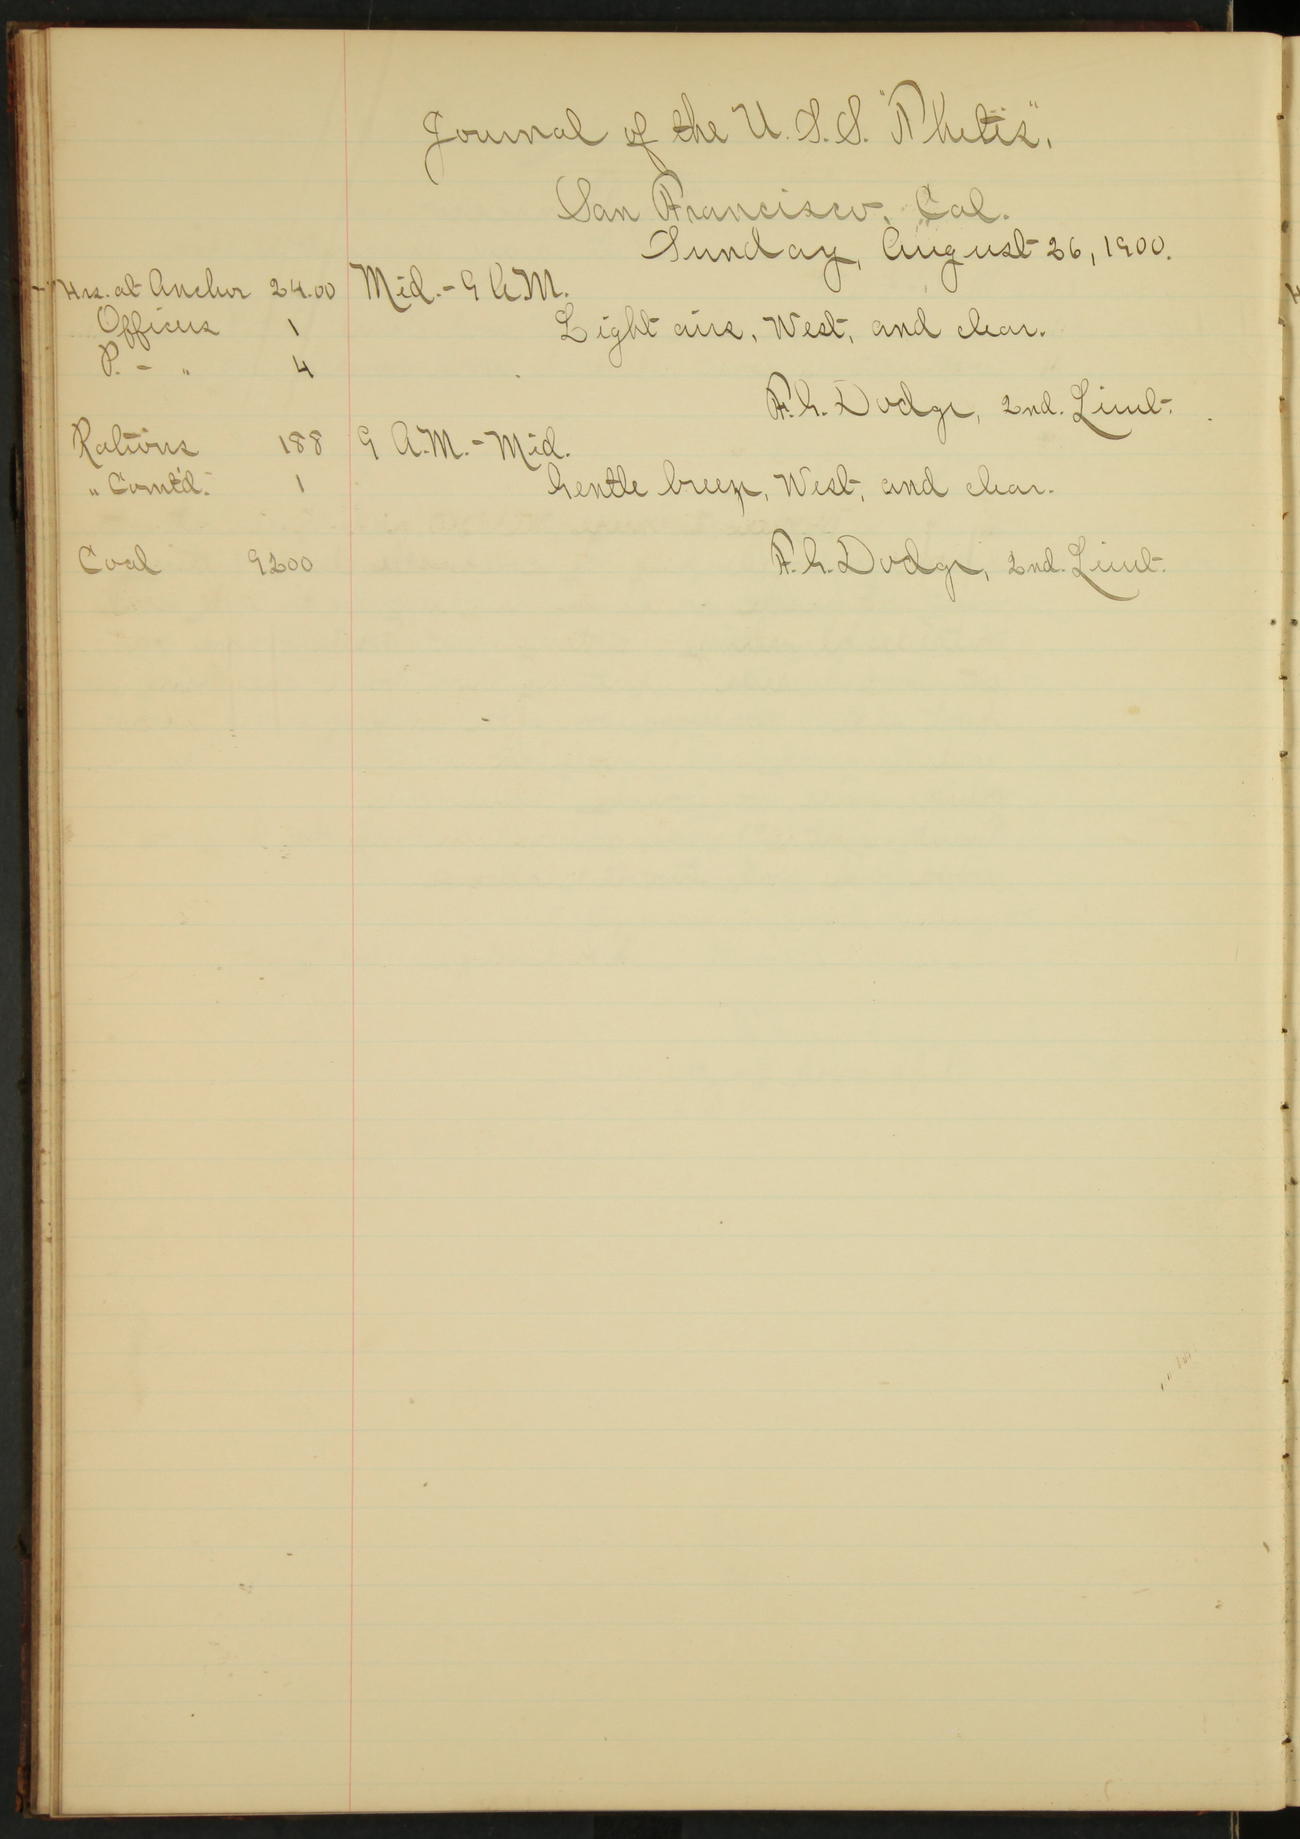 Journal of the U.S.S. "Thetis",
San Francisco, Cal.
Sunday, August 26, 1900.
Hrs. at Anchor 24.00 Mid.-9 A.M.
Officers 1 Light airs, West, and clear.
P. - " 4
F.G. Dodge, 2nd. Lieut.
Rations 188 9 A.M.-Mid.
" Comt'd. 1 Gentle breeze, West, and clear.
Coal 9200 F.G. Dodge, 2nd. Lieut.